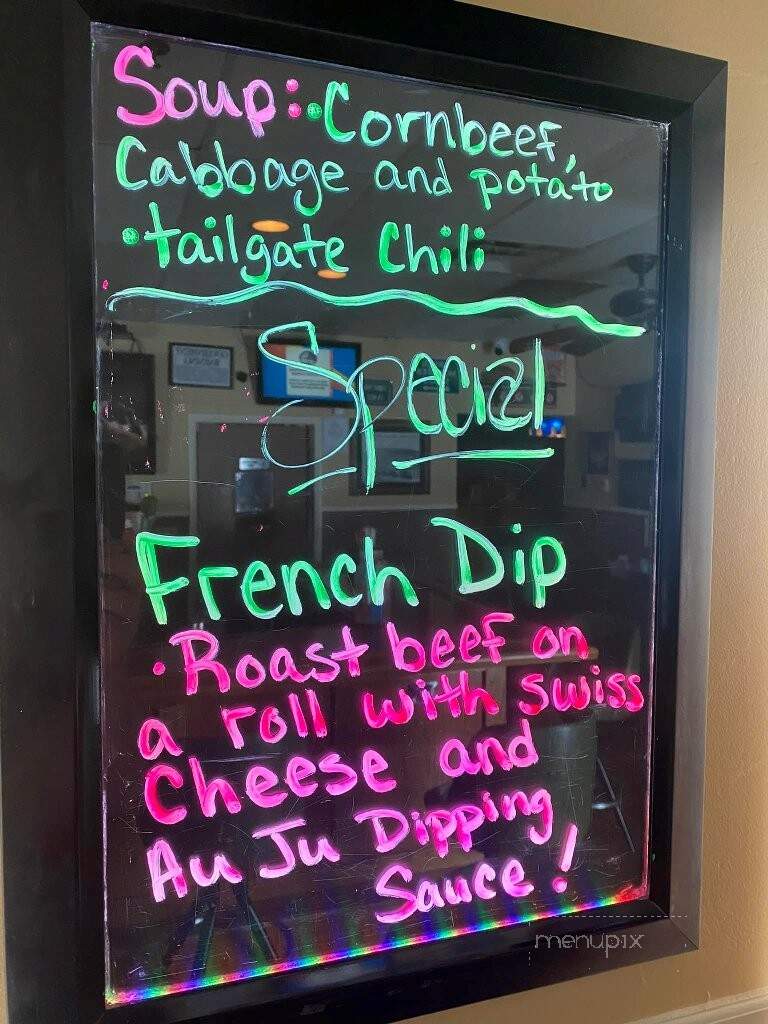 Soup: • Cornbeef,
Cabbage and potato
• tailgate Chili
Special
French Dip
• Roast beef on
a roll with swiss
Cheese and
Au Ju Dipping
Sauce!
menupix